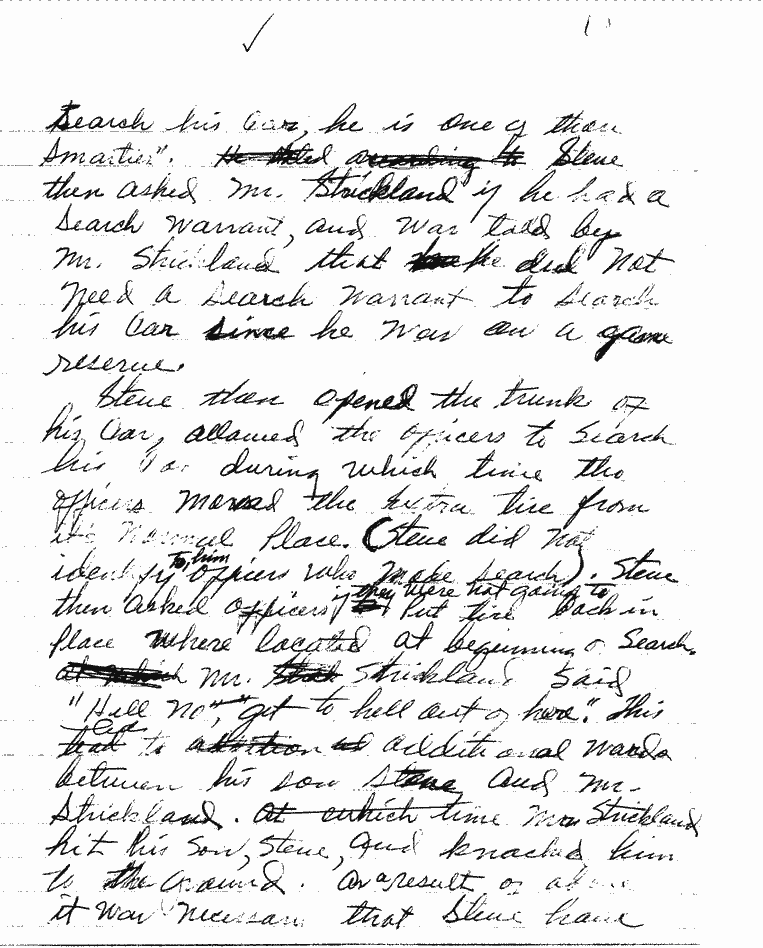 Search his Car, he is one of them
Smarties". He stated according to Steve
then asked Mr. Strickland if he had a
Search warrant, and was told by
Mr. Strickland that he did not
need a search warrant to search
his Car since he was on a game
reserve.
Steve then opened the trunk of
his Car, allowed the officers to search
his Car during which time the
officers moved the extra tire from
its normal place. (Steve did not
to him
identify officers who make search). Steve
they were not going to
then asked officers if put tire back in
place where located at beginning of search.
at which Mr. Strickland said
"Hell no", get to hell out of here". This
led
had to addition additional words
between his son Steve and Mr.
Strickland. At which time Mr. Strickland
hit his son, Steve, and knocked him
to the ground. As a result of above
it was necessary that Steve have